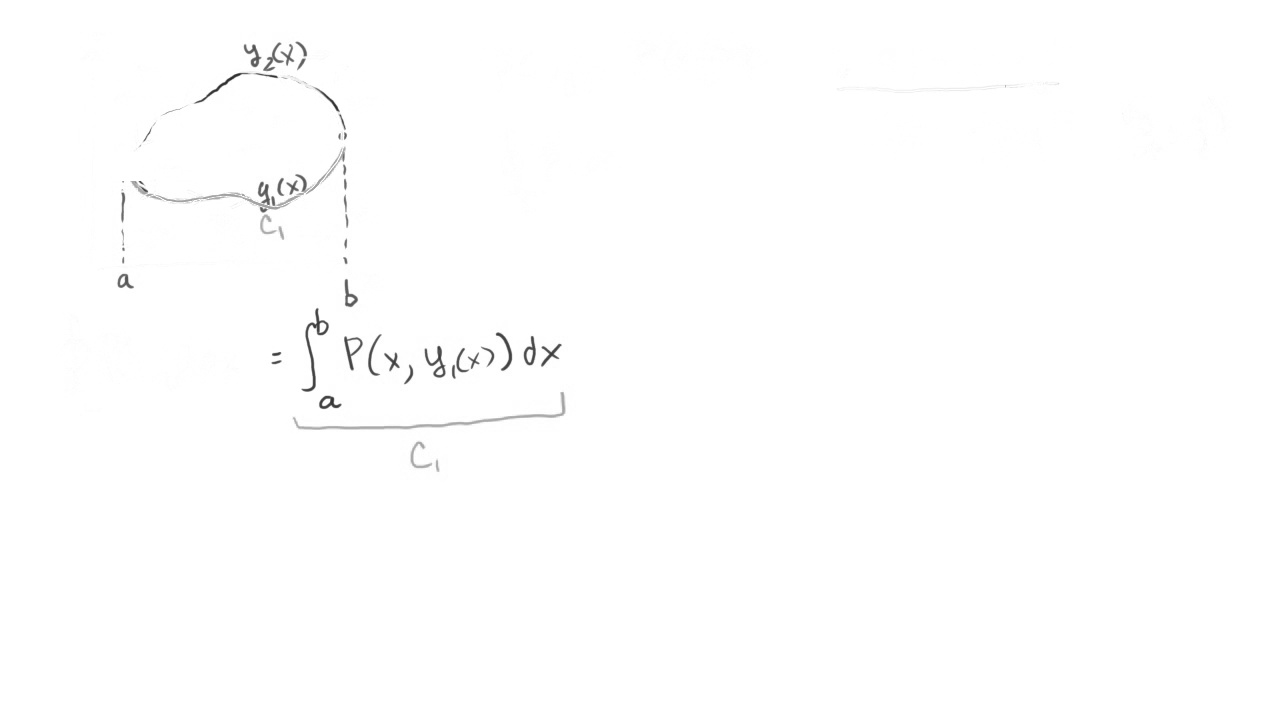 y₂(x)
y₁(x)
C₁
a
b
= ∫ₐᵇ P(x, y₁(x)) dx
C₁